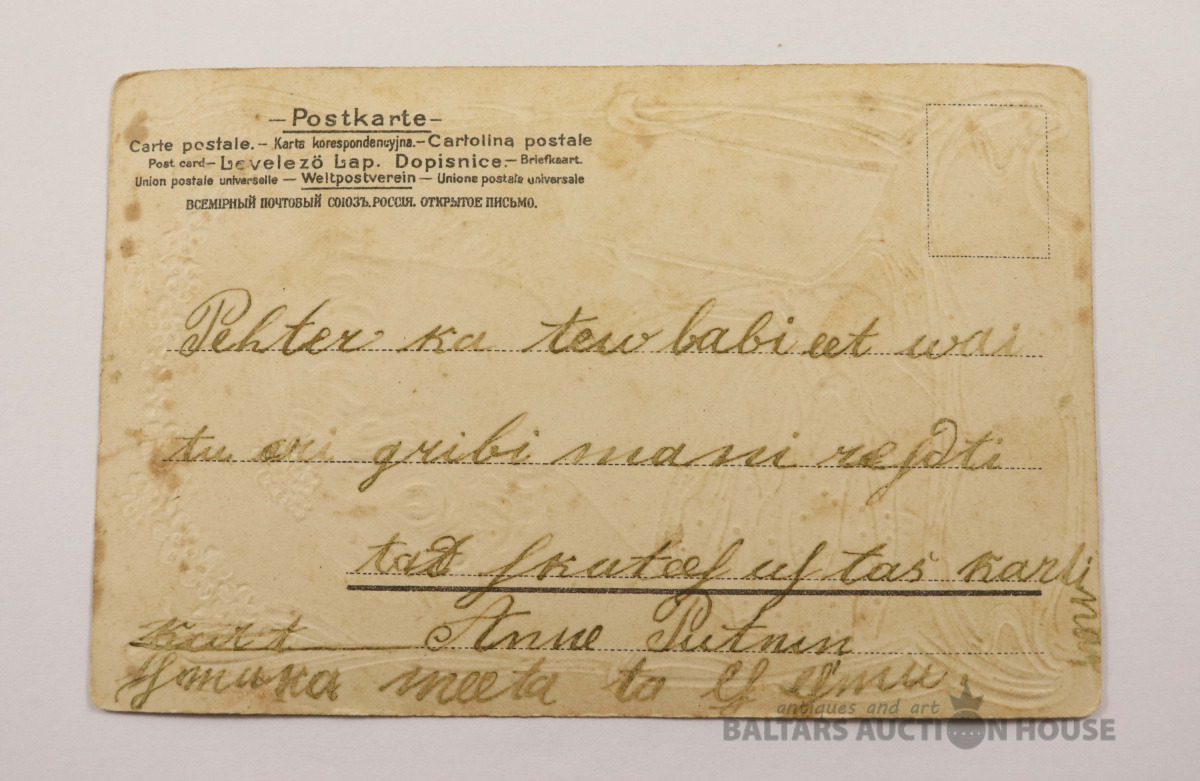 — Postkarte —
Carte postale. — Karta korespondencyjna. — Cartolina postale
Post card — Levelezö Lap. Dopisnice. — Briefkaart.
Union postale universelle — Weltpostverein — Unione postale universale
ВСЕМІРНЫЙ ПОЧТОВЫЙ СОЮЗЪ. РОССІЯ. ОТКРЫТОЕ ПИСЬМО.
Pehter ka tew babi eet wai
tu gribi mani
tad ſkatees uſ tas
Anne Putnin
smuka meeta to
antiques and art
BALTARS AUCTION HOUSE